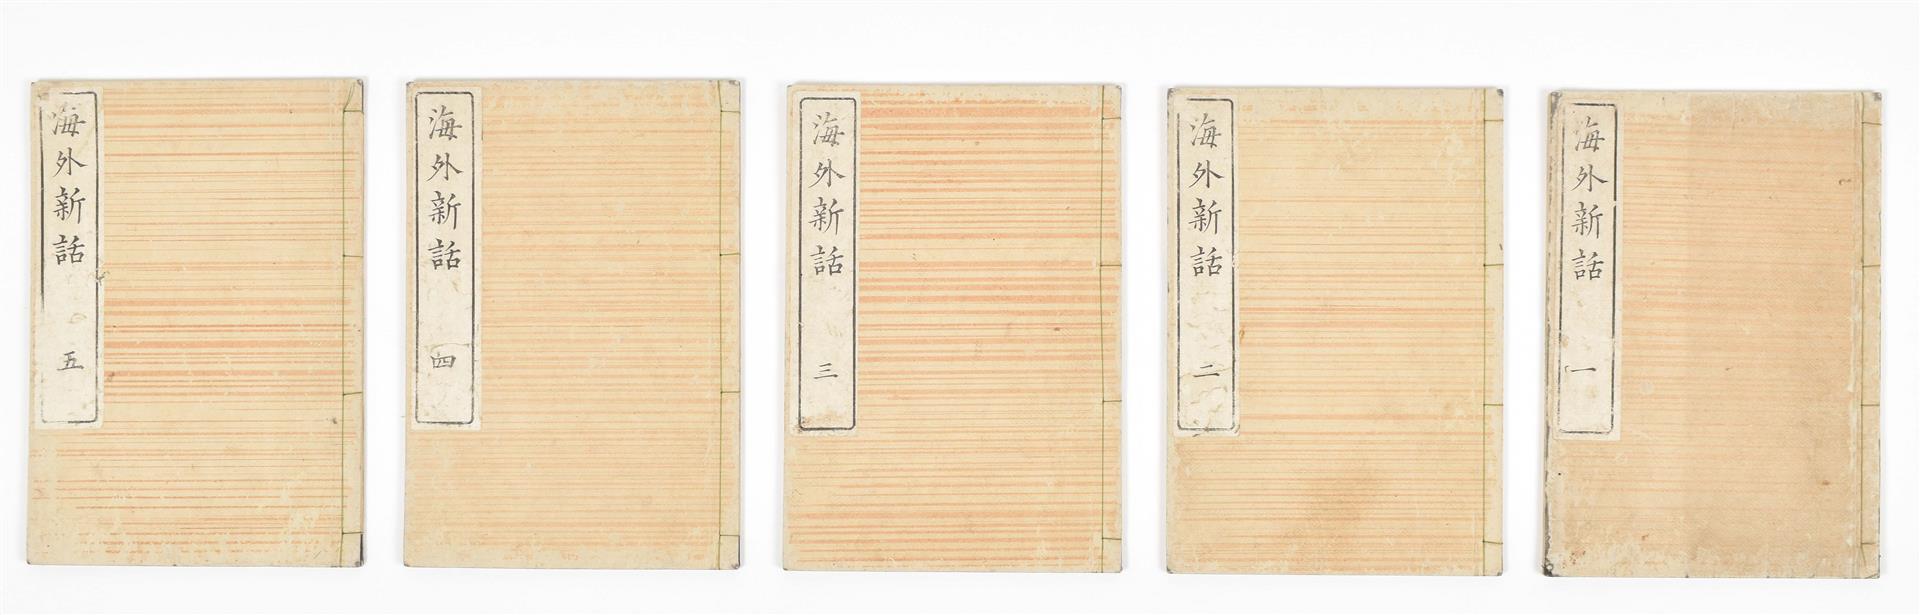 海外新話 一
海外新話 二
海外新話 三
海外新話 四
海外新話 五